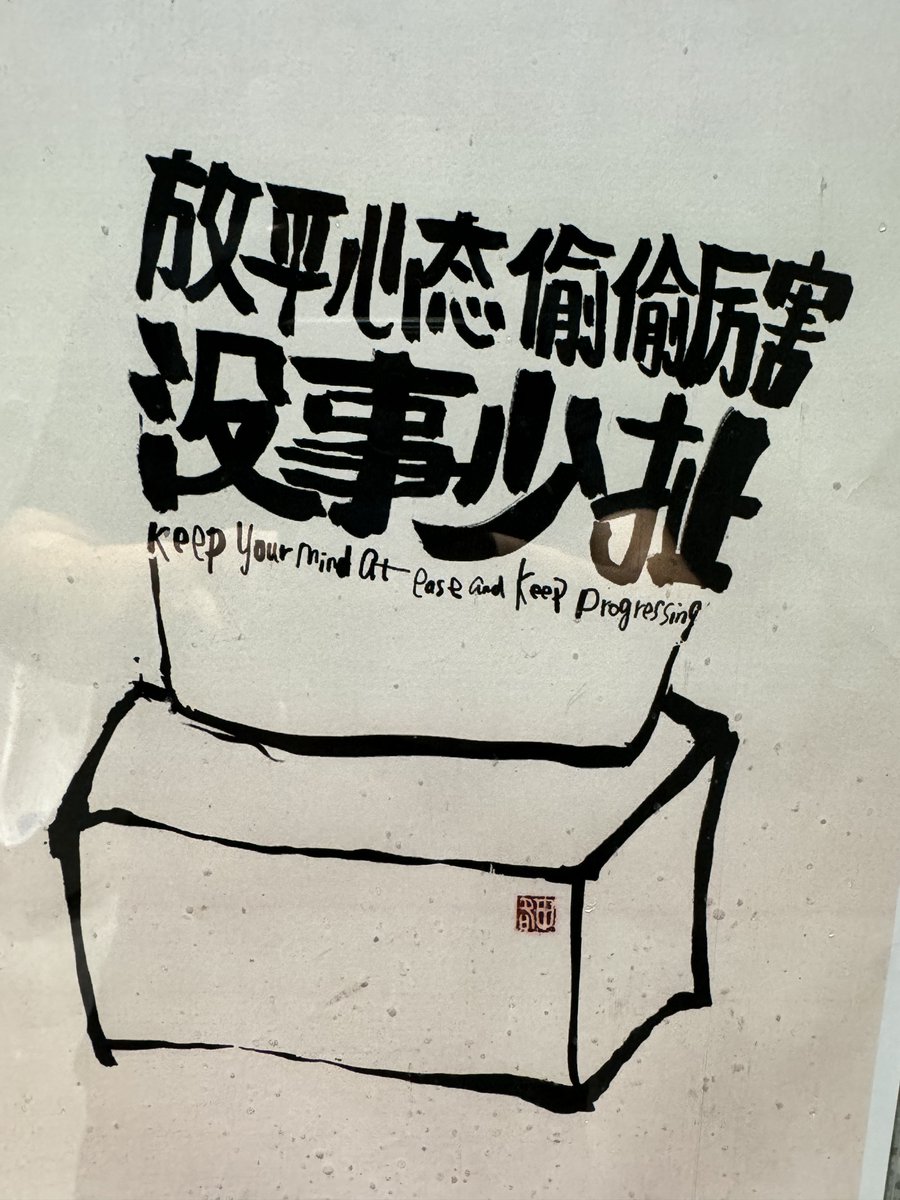 放平心态偷偷厉害
没事少扯
Keep Your Mind At ease and Keep Progressing